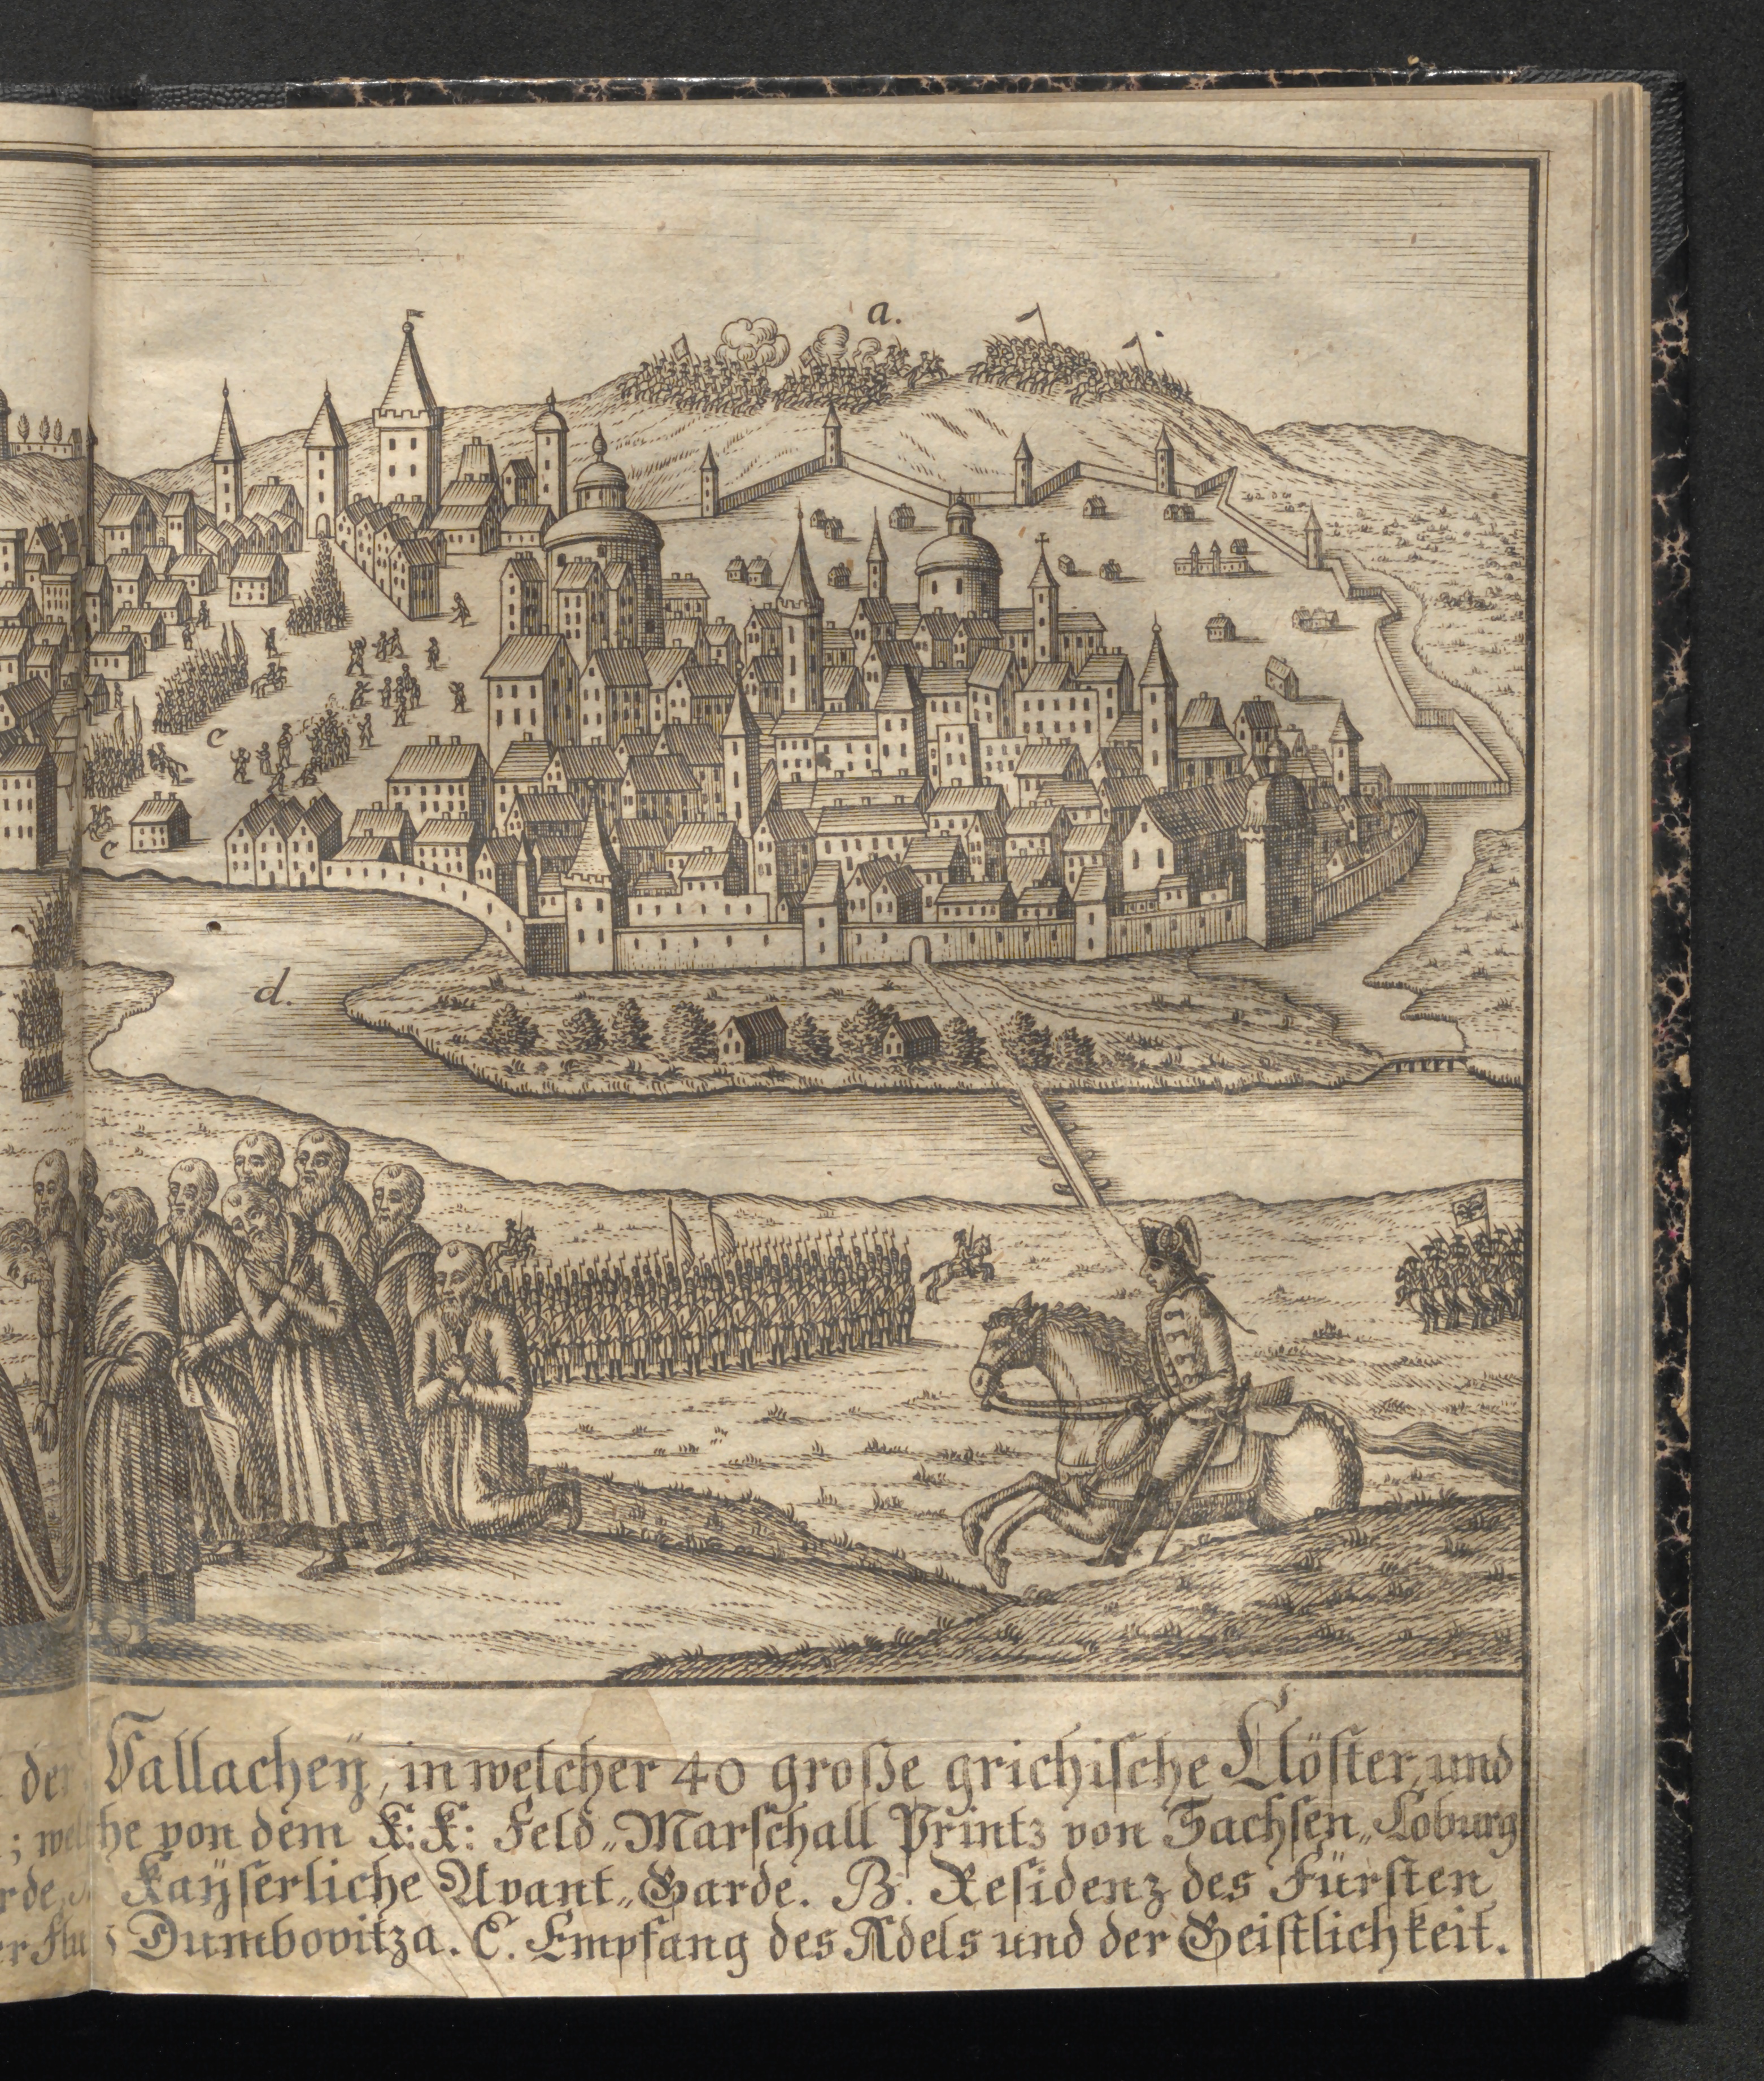 a.
e
e
d.
der Vallacheÿ, in welcher 40 große grichische Clöster, und
; welche von dem K: K: Feld„Marschall Printz von Sachsen„Coburg
Kaÿserliche Avant„Garde. B. Residenz des Fürsten
er Fluß Dumbovitza. C. Empfang des Adels und der Geistlichkeit.